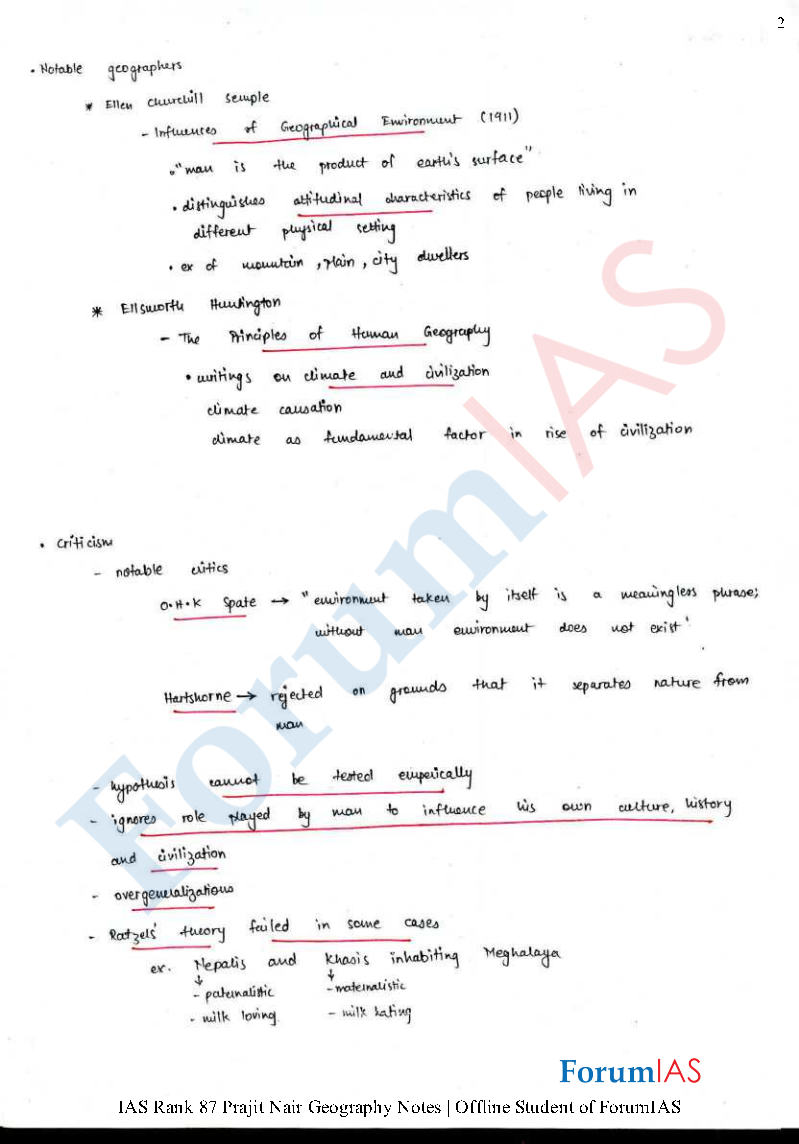 2
• Notable geographers
* Ellen Churchill Semple
- Influences of Geographical Environment (1911)
• "man is the product of earth's surface"
• distinguishes attitudinal characteristics of people living in
different physical setting
• ex of mountain, plain, city dwellers
* Ellsworth Huntington
- The Principles of Human Geography
• writings on climate and civilization
climate causation
climate as fundamental factor in rise of civilization
• Criticism
- notable critics
O.H.K Spate → "environment taken by itself is a meaningless phrase;
without man environment does not exist"
Hartshorne → rejected on grounds that it separates nature from
man
- hypothesis cannot be tested emperically
- ignores role played by man to influence his own culture, history
and civilization
- overgeneralizations
- Ratzels' theory failed in some cases
ex. Nepalis and Khasis inhabiting Meghalaya
↓ ↓
- paternalistic - maternalistic
- milk loving - milk hating
ForumIAS
ForumIAS
IAS Rank 87 Prajit Nair Geography Notes | Offline Student of ForumIAS